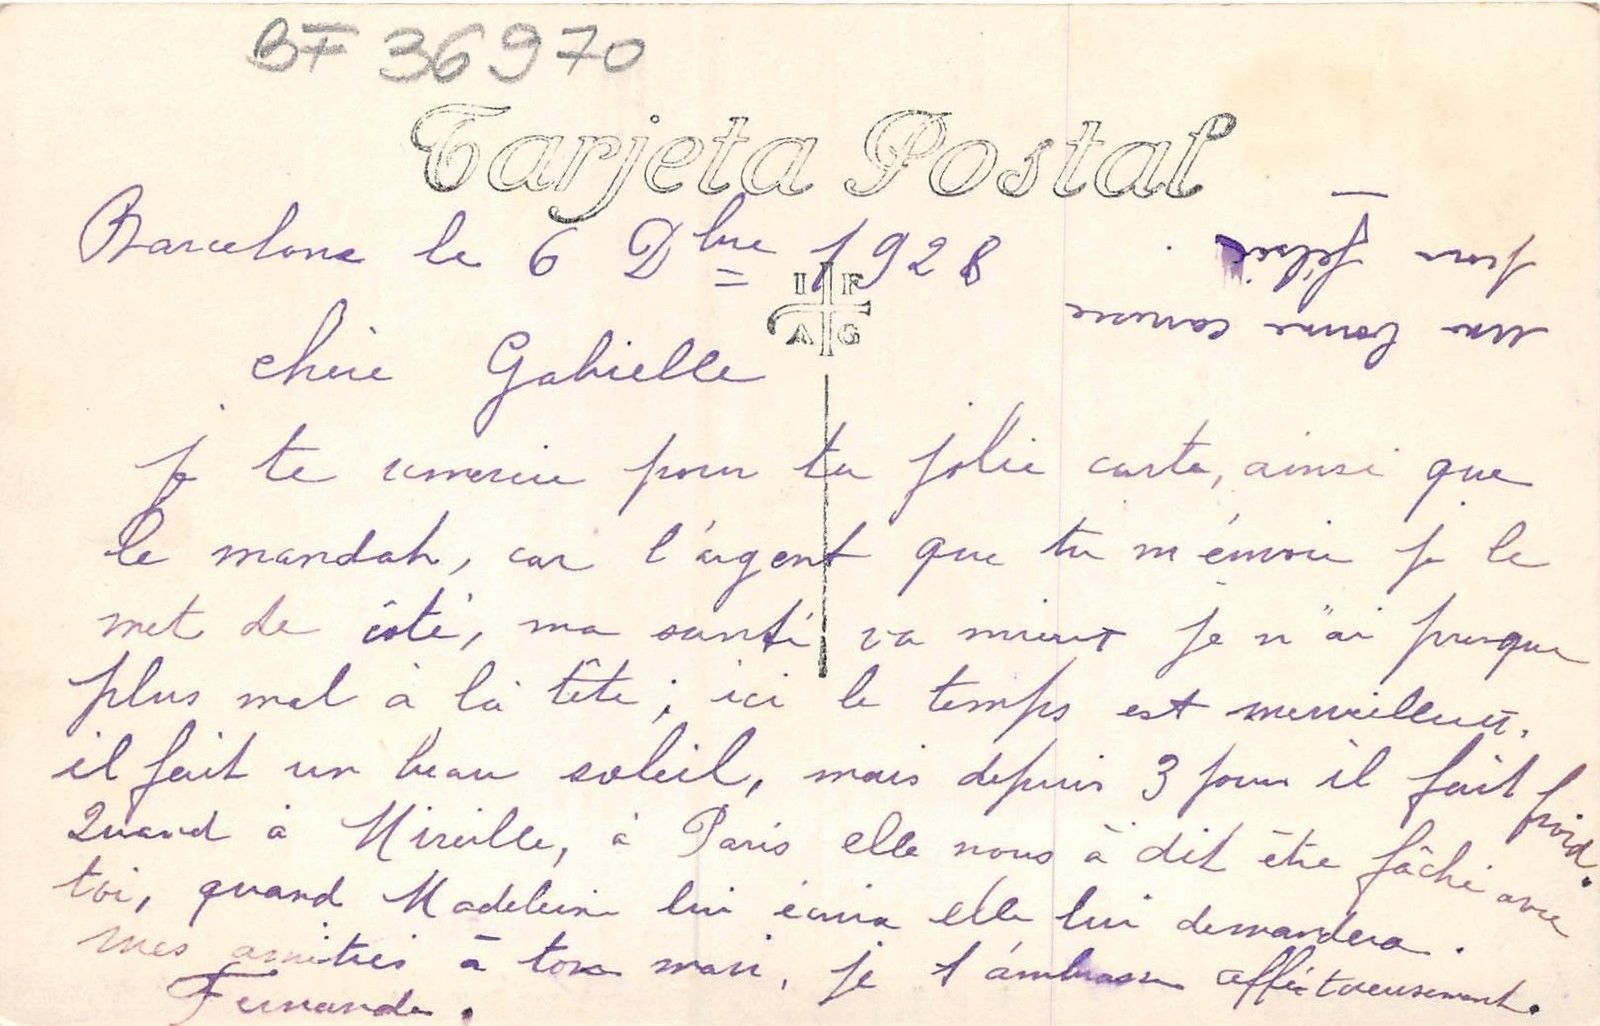 BF 36970
Tarjeta Postal
Barcelone le 6 Dbre 1928
I F
A G
une bonne caresse
pour Félicie
chère Gabielle
je te remercie pour ta jolie carte, ainsi que
le mandah, car l'argent que tu m'envoie je le
met de côté, ma santé va mieux je n'ai presque
plus mal à la tête; ici le temps est merveilleux,
il fait un beau soleil, mais depuis 3 jours il fait froid.
Quand à Mireille, à Paris elle nous à dit être fâché avec
toi, quand Madeleine lui écrira elle lui demandera.
mes amitiés à ton mari, je t'ambrasse afféctueusement.
Fernande.